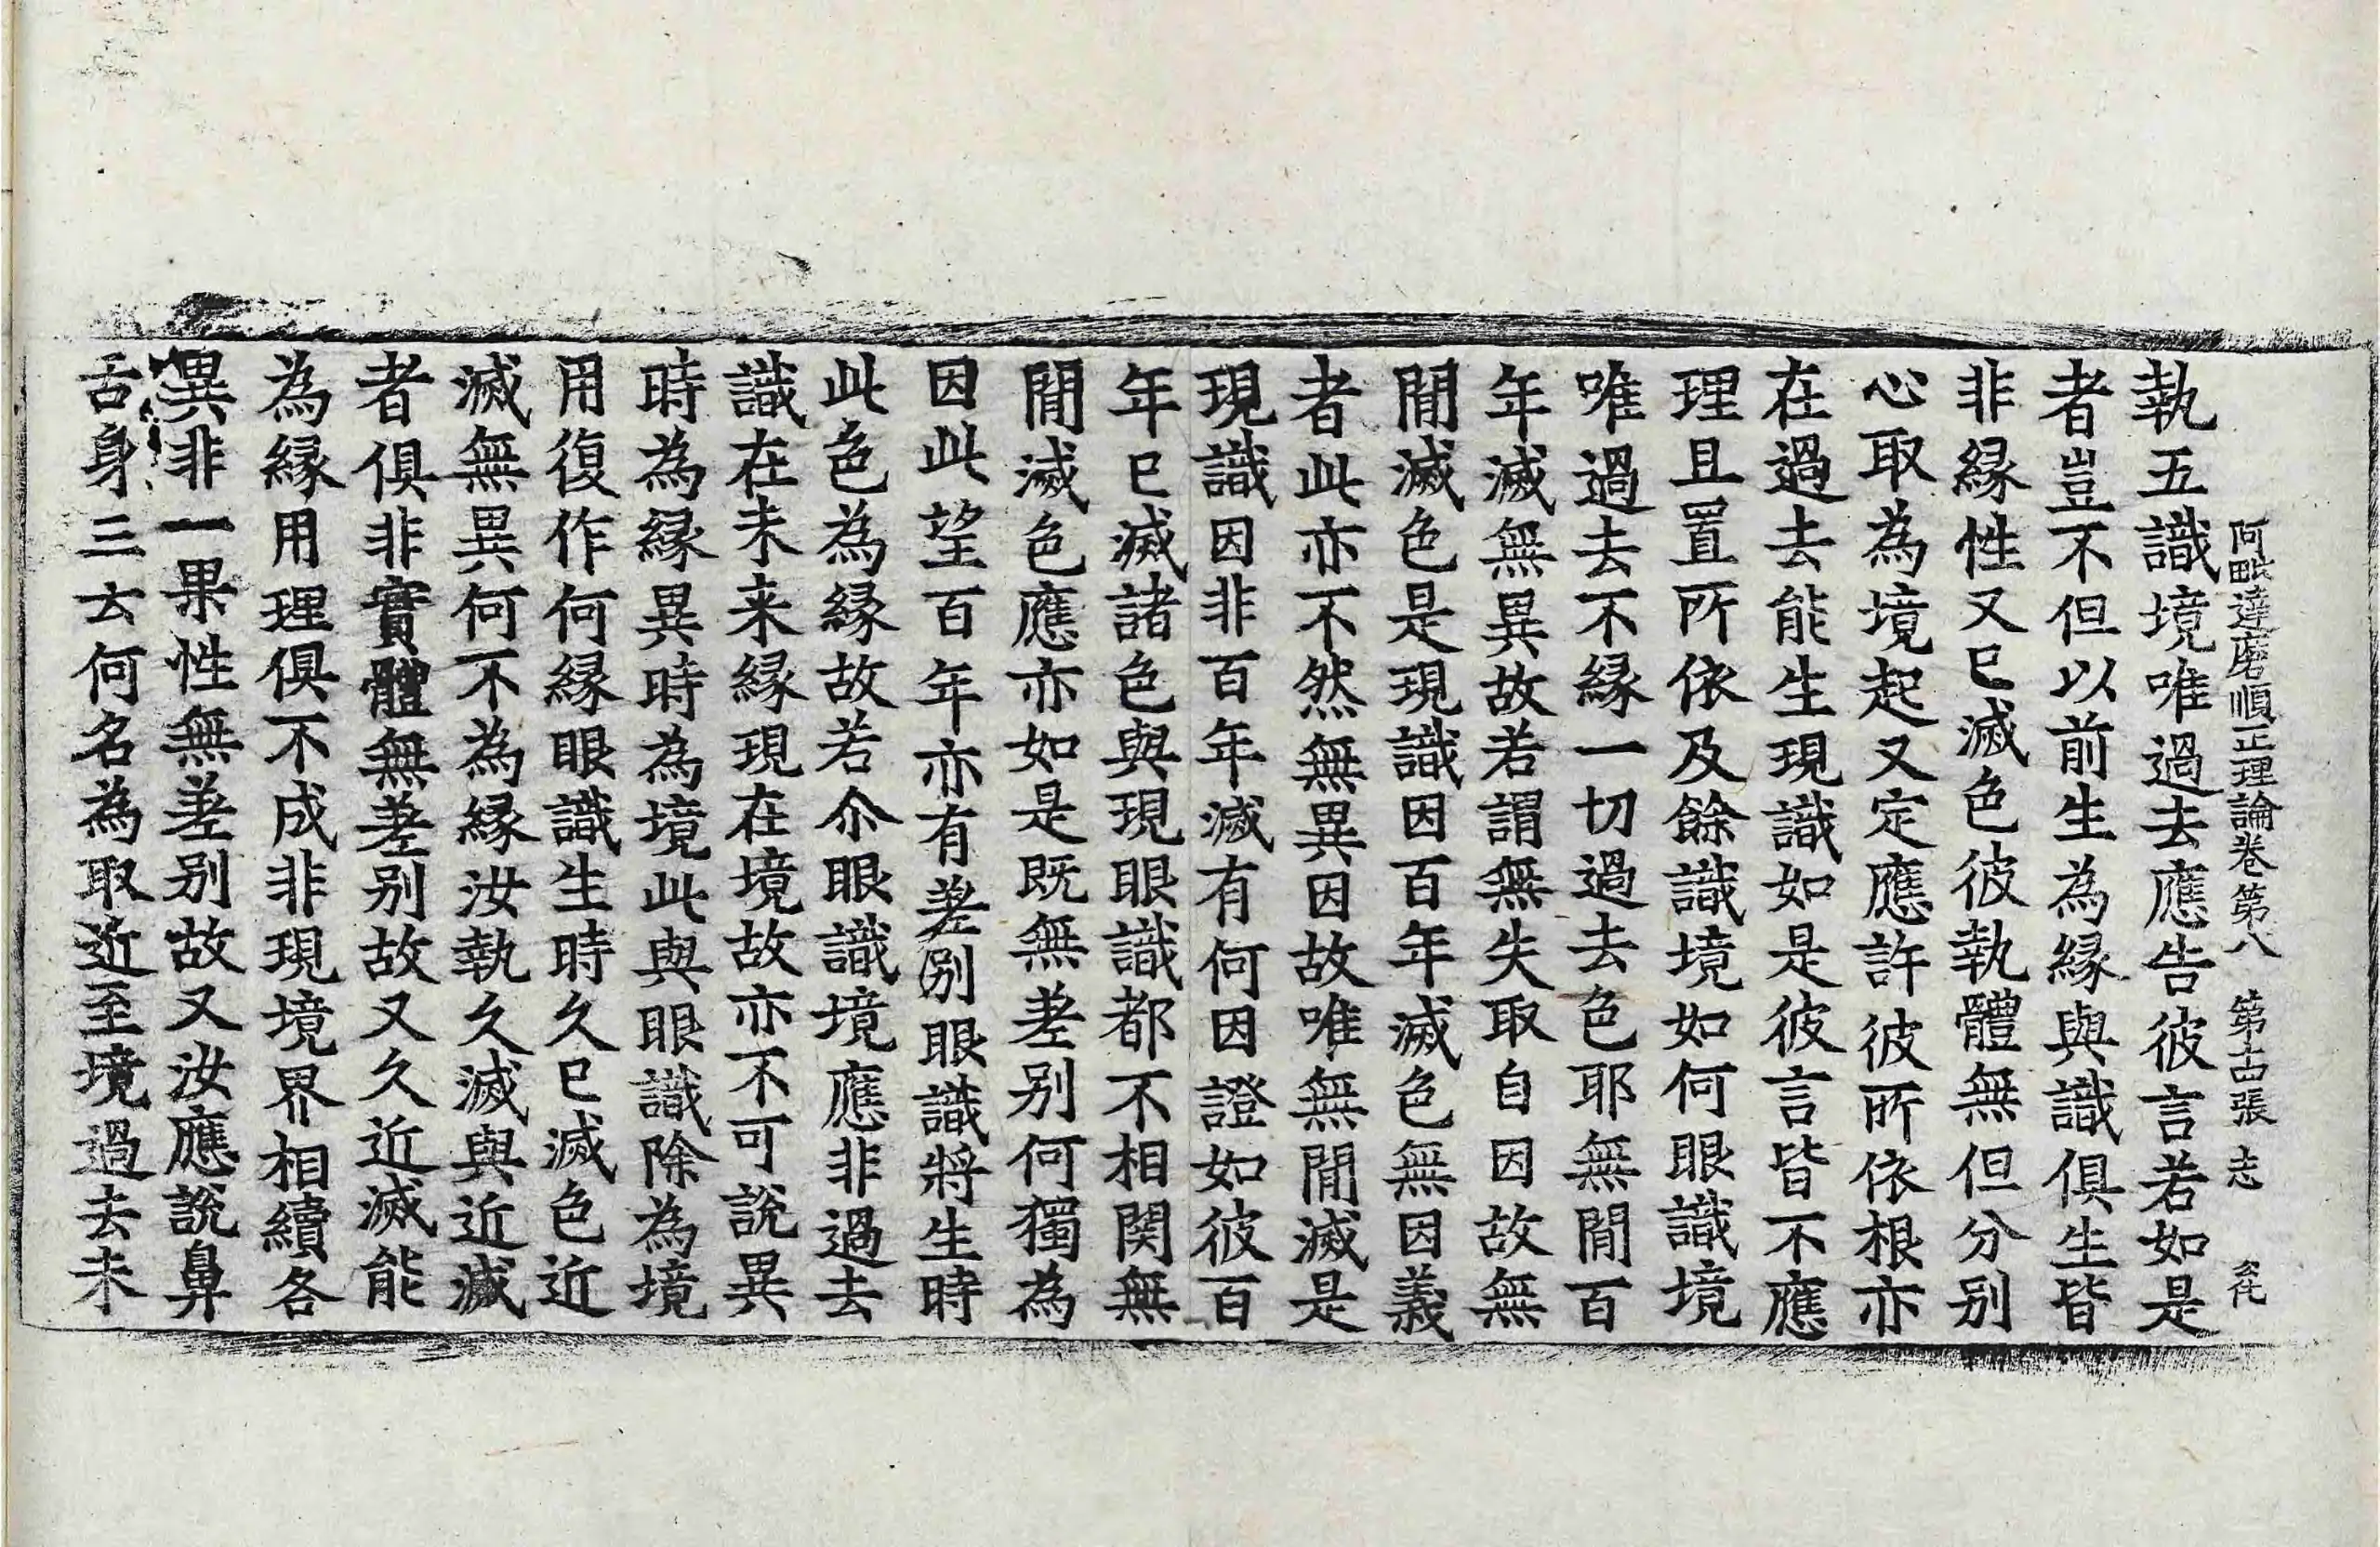 阿毗達磨順正理論卷第八　第古張　志
執五識境唯過去應告彼言若如是
者豈不但以前生為緣與識俱生皆
非緣性又已滅色彼執體無但分别
心取為境起又定應許彼所依根亦
在過去能生現識如是彼言皆不應
理且置所依及餘識境如何眼識境
唯過去不緣一切過去色耶無間百
年滅無異故若謂無失取自因故無
間滅色是現識因百年滅色無因義
者此亦不然無異因故唯無間滅是
現識因非百年滅有何因證如彼百
年已滅諸色與現眼識都不相関無
間滅色應亦如是既無差别何獨為
因此望百年亦有差别眼識將生時
此色為緣故若尒眼識境應非過去
識在未来緣現在境故亦不可說異
時為緣異時為境此與眼識除為境
用復作何緣眼識生時久已滅色近
滅無異何不為緣汝執久滅與近滅
者俱非實體無差别故又久近滅能
為緣用理俱不成非現境界相續各
異非一果性無差别故又汝應說鼻
舌身三云何名為取近至境過去未